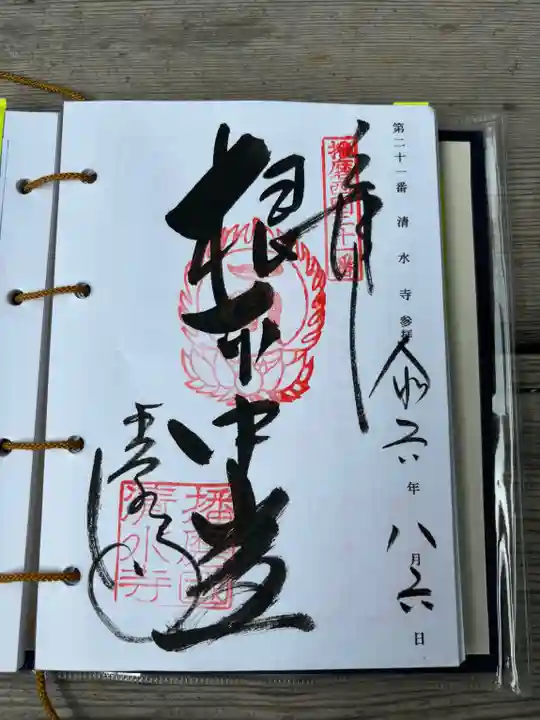 第二十一番 清水寺 参拝
令和六年八月六日
奉拝
播磨西国二十一番
根本中堂
清水寺
播磨國清水寺